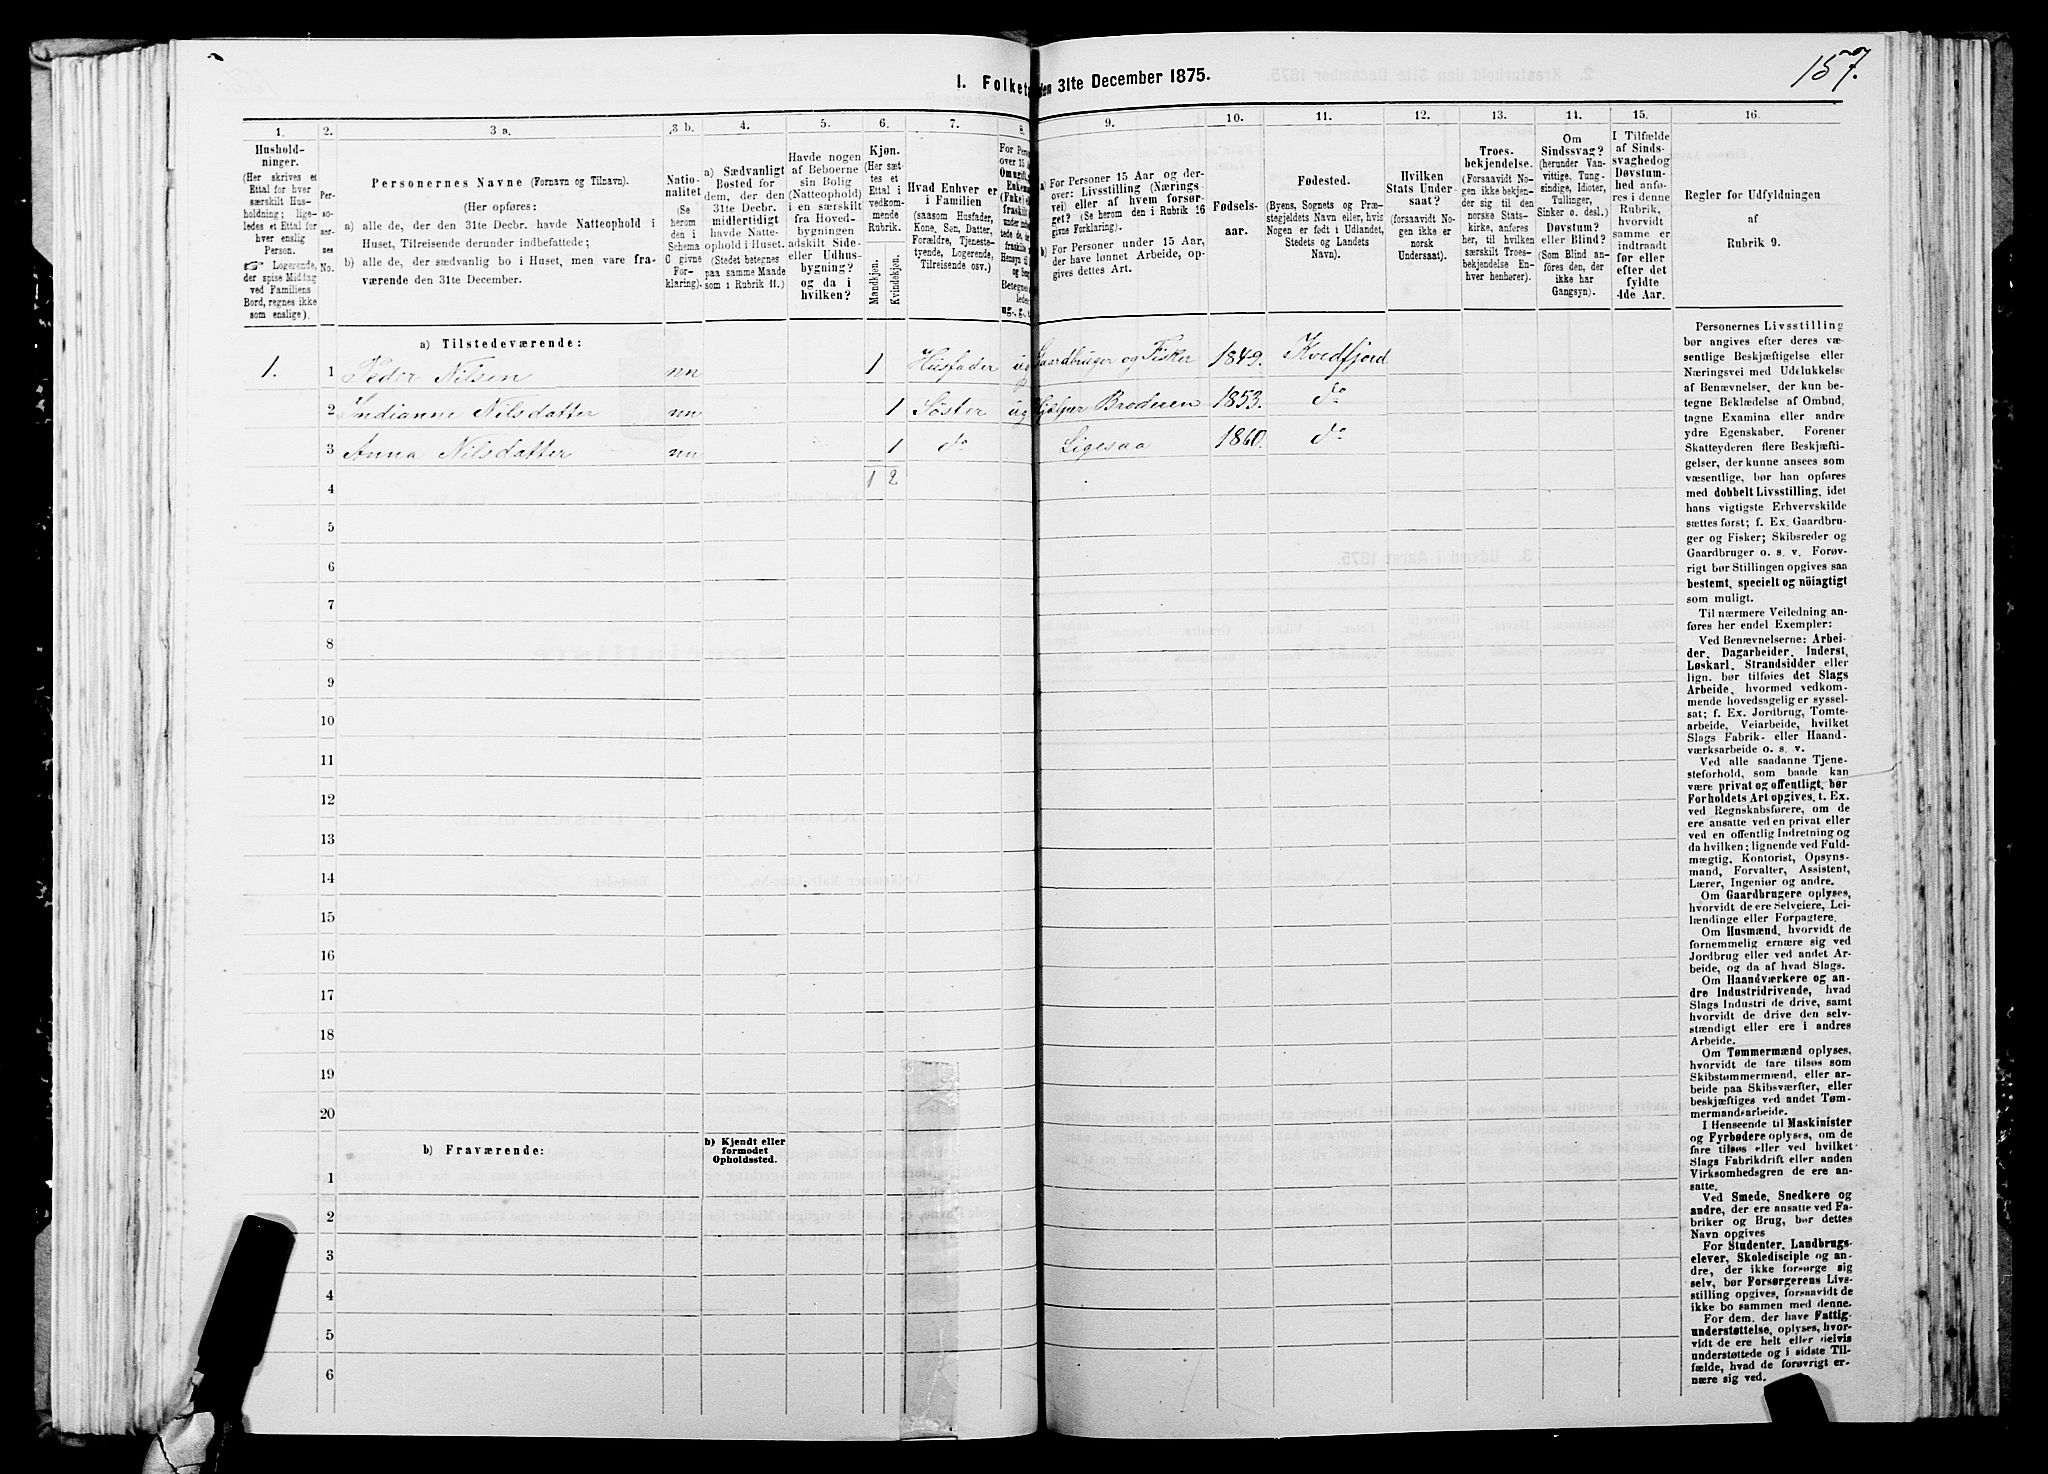 157.
1. Folketæ den 31te December 1875.
1. 2. 3 a. 3 b. 4. 5. 6. 7. 8. 9. 10. 11. 12. 13. 14. 15. 16.
Hushold-
ninger.
(Her skrives et
Ettal for hver
særskilt Hus-
holdning; lige-
ledes et Ettal for
hver enslig
Person.
☞ Logerende,
der spise Middag
ved Familiens
Bord, regnes ikke
som enslige).
Per-
so-
ner-
nes
No.
Personernes Navne (Fornavn og Tilnavn).
(Her opføres:
a) alle de, der den 31te Decbr. havde Natteophold i
Huset, Tilreisende derunder indbefattede;
b) alle de, der sædvanlig bo i Huset, men vare fra-
værende den 31te December.
Natio-
nalitet
(Se
herom
den i
Schema
C givne
For-
klaring).
a) Sædvanligt
Bosted for
dem, der den
31te Decbr.
midlertidigt
havde Natte-
ophold i Huset.
(Stedet betegnes
paa samme Maade
som i Rubrik 11.)
Havde nogen
af Beboerne
sin Bolig
(Natteophold)
i en særskilt
fra Hoved-
bygningen
adskilt Side-
eller Udhus-
bygning?
og da i
hvilken?
Kjøn.
(Her sæt-
tes et
Ettal i
vedkom-
mende
Rubrik.
Mandkjøn.
Kvindekjøn.
Hvad Enhver er
i Familien
(saasom Husfader,
Kone, Søn, Datter,
Forældre, Tjeneste-
tyende, Logerende,
Tilreisende osv.)
For Pers
over 15
a) For Personer 15 Aar og der-
over: Livsstilling (Nærings
vei) eller af hvem forsør-
get? (Se herom den i Rubrik 16
givne Forklaring).
b) For Personer under 15 Aar,
der have lønnet Arbeide, op-
gives dettes Art.
Fødsels-
aar.
Fødested.
(Byens, Sognets og Præ-
stegjeldets Navn eller, hvis
Nogen er født i Udlandet,
Stedets og Landets
Navn).
Hvilken
Stats Under-
saat?
(forsaavidt No-
gen ikke er
norsk
Undersaat).
Troes-
bekjendelse.
(Forsaavidt No-
gen ikke bekjen-
der sig til den
norske Stats-
kirke, anføres
her, til hvilken
særskilt Troes-
bekjendelse En-
hver henhører).
Om
Sindssvag?
(herunder Van-
vittige, Tung-
sindige, Idioter,
Tullinger,
Sinker o. desl.)
Døvstum?
eller Blind?
(Som Blind an-
føres den, der
ikke har
Gangsyn).
I Tilfælde
af Sinds-
svaghed og
Døvstum-
hed anfø-
res i denne
Rubrik,
hvorvidt
samme er
indtraadt
før eller
efter det
fyldte
4de Aar.
Regler for Udfyldningen
af
Rubrik 9.
a) Tilstedeværende:
1. 1 Peder Nilsen nn 1 Husfader ug Gaardbruger og Fisker 1849. Kvedfjord
2 Indianne Nilsdatter nn 1 Søster ug Hjælper Broderen 1853. do
3 Anna Nilsdatter nn 1 do Ligesaa 1860. do
4 1 2
5
6
7
8
9
10
11
12
13
14
15
16
17
18
19
20
b) Fraværende:
b) Kjendt eller
formodet
Opholdssted.
1
2
3
4
5
6
Personernes Livsstilling
bør angives efter deres væ-
sentlige Beskjæftigelse eller
Næringsvei med Udelukkelse
af Benævnelser, der kun be-
tegne Beklædelse af Ombud,
tagne Examina eller andre
ydre Egenskaber. Forener
Skatteyderen flere Beskjæfti-
gelser, der kunne ansees som
væsentlige, bør han opføres
med dobbelt Livsstilling, idet
hans vigtigste Erhvervskilde
sættes først; f. Ex. Gaardbru-
ger og Fisker; Skibsreder og
Gaardbruger o. s. v. Forøv-
rigt bør Stillingen opgives saa
bestemt, specielt og nöiagtigt
som muligt.
Til nærmere Veiledning an-
føres her endel Exempler:
Ved Benævnelserne: Arbei-
der, Dagarbeider, Inderst,
Løskarl, Strandsidder eller
lign. bør tilføies det Slags
Arbeide, hvormed vedkom-
mende hovedsagelig er syssel-
sat; f. Ex. Jordbrug, Tomte-
arbeide, Veiarbeide, hvilket
Slags Fabrik- eller Haand-
værksarbeide o. s. v.
Ved alle saadanne Tjene-
steforhold, som baade kan
være privat og offentligt, bør
Forholdets Art opgives, t. Ex.
ved Regnskabsførere, om de
ere ansatte ved en privat eller
ved en offentlig Indretning og
da hvilken; lignende ved Fuld-
mægtig, Kontorist, Opsyns-
mand, Forvalter, Assistent,
Lærer, Ingeniør og andre.
Om Gaardbrugere oplyses,
hvorvidt de ere Selveiere, Lei-
lændinge eller Forpagtere.
Om Husmænd, hvorvidt de
fornemmelig ernære sig ved
Jordbrug eller ved andet Ar-
beide, og da af hvad Slags.
Om Haandværkere og an-
dre Industridrivende, hvad
Slags Industri de drive, samt
hvorvidt de drive den selv-
stændigt eller ere i andres
Arbeide.
Om Tømmermænd oplyses,
hvorvidt de fare tilsøs som
Skibstømmermænd, eller ar-
beide paa Skibsværfter, eller
beskjæftiges ved andet Tøm-
mermandsarbeide.
I Henseende til Maskinister
og Fyrbødere oplyses, om de
fare tilsøs eller ved hvilket
Slags Fabrikdrift eller anden
Virksomhedsgren de ere an-
satte.
Ved Smede, Snedkere og
andre, der ere ansatte ved Fa-
briker og Brug, bør dettes
Navn opgives
For Studenter, Landbrugs-
elever, Skoledisciple og an-
dre, der ikke forsørge sig
selv, bør Forsørgerens Livs-
stilling opgives, forsaavidt de
ikke bo sammen med denne.
For dem, der have Fattig-
understøttelse, oplyses, hvor-
vidt de ere helt eller delvis
understøttede og i sidste Til-
fælde, hvad de forøvrigt er-
nære sig ved.